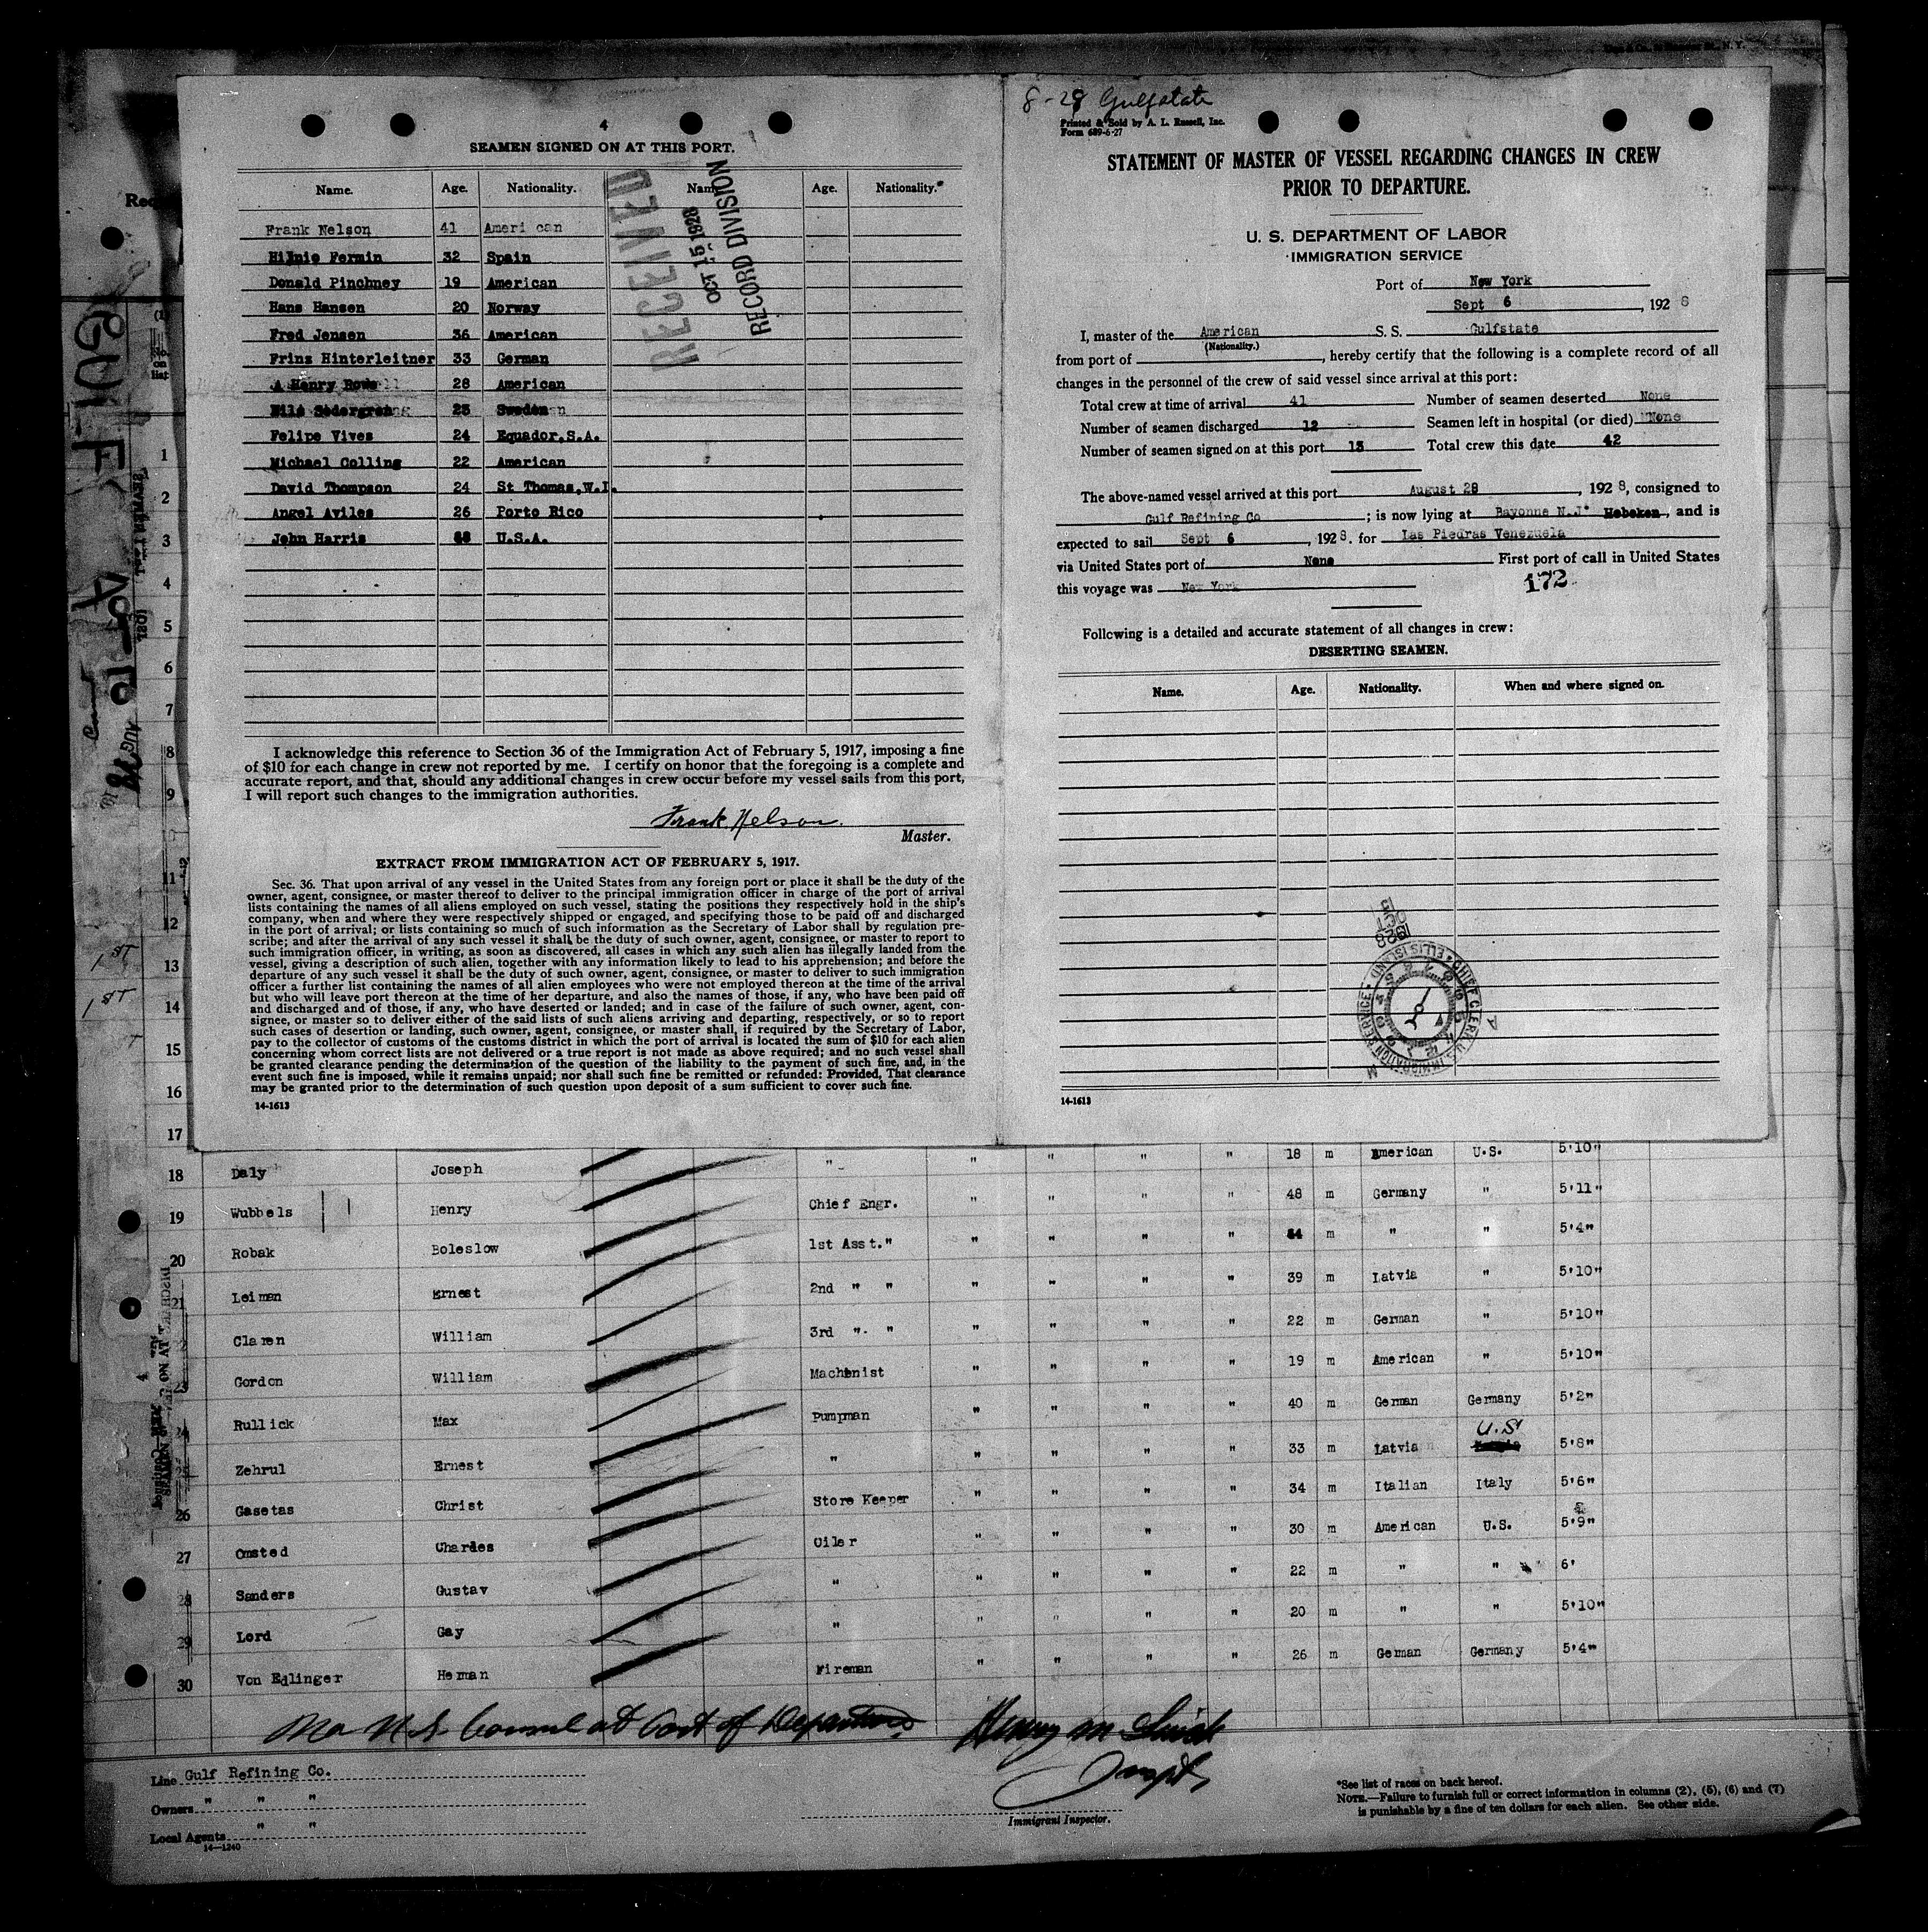 4
SEAMEN SIGNED ON AT THIS PORT.
Name. Age. Nationality. Name. Age. Nationality.
Frank Nelson 41 American
Fermin 32 Spain
Donald Pinchney 19 American
Hans Hansen 20 Norway
Fred Jensen 36 American
Frinz Hinterleitner 33 German
A Henry 28 American
25 Sweden
Felipe Vives 24 Equador.S.A.
Michael Colling 22 American
David Thompson 24 St Thomas.W.I.
Angel Aviles 26 Porto Rico
John Harris U.S.A.
RECEIVED
OCT 15 1928
RECORD DIVISION
I acknowledge this reference to Section 36 of the Immigration Act of February 5, 1917, imposing a fine
of $10 for each change in crew not reported by me. I certify on honor that the foregoing is a complete and
accurate report, and that, should any additional changes in crew occur before my vessel sails from this port,
I will report such changes to the immigration authorities.
Frank Nelson.
Master.
EXTRACT FROM IMMIGRATION ACT OF FEBRUARY 5, 1917.
Sec. 36. That upon arrival of any vessel in the United States from any foreign port or place it shall be the duty of the
owner, agent, consignee, or master thereof to deliver to the principal immigration officer in charge of the port of arrival
lists containing the names of all aliens employed on such vessel, stating the positions they respectively hold in the ship's
company, when and where they were respectively shipped or engaged, and specifying those to be paid off and discharged
in the port of arrival; or lists containing so much of such information as the Secretary of Labor shall by regulation pre-
scribe; and after the arrival of any such vessel it shall be the duty of such owner, agent, consignee, or master to report to
such immigration officer, in writing, as soon as discovered, all cases in which any such alien has illegally landed from the
vessel, giving a description of such alien, together with any information likely to lead to his apprehension; and before the
departure of any such vessel it shall be the duty of such owner, agent, consignee, or master to deliver to such immigration
officer a further list containing the names of all alien employees who were not employed thereon at the time of the arrival
but who will leave port thereon at the time of her departure, and also the names of those, if any, who have been paid off
and discharged and of those, if any, who have deserted or landed; and in case of the failure of such owner, agent, con-
signee, or master so to deliver either of the said lists of such aliens arriving and departing, respectively, or so to report
such cases of desertion or landing, such owner, agent, consignee, or master shall, if required by the Secretary of Labor,
pay to the collector of customs of the customs district in which the port of arrival is located the sum of $10 for each alien
concerning whom correct lists are not delivered or a true report is not made as above required; and no such vessel shall
be granted clearance pending the determination of the question of the liability to the payment of such fine, and, in the
event such fine is imposed, while it remains unpaid; nor shall such fine be remitted or refunded: Provided, That clearance
may be granted prior to the determination of such question upon deposit of a sum sufficient to cover such fine.
14-1613
8-28 Gulfstate
Printed & Sold by A. L. Russell, Inc.
Form 689-6-27
STATEMENT OF MASTER OF VESSEL REGARDING CHANGES IN CREW
PRIOR TO DEPARTURE.
U. S. DEPARTMENT OF LABOR
IMMIGRATION SERVICE
Port of New York
Sept 6, 1928
I, master of the American S. S. Gulfstate
(Nationality.)
from port of , hereby certify that the following is a complete record of all
changes in the personnel of the crew of said vessel since arrival at this port:
Total crew at time of arrival 41 Number of seamen deserted None
Number of seamen discharged 12 Seamen left in hospital (or died) None
Number of seamen signed on at this port 13 Total crew this date 42
The above-named vessel arrived at this port August 28, 1928, consigned to
Gulf Refining Co; is now lying at Bayonne N.J. Hoboken, and is
expected to sail Sept 6, 1928. for Las Piedras Venezuela
via United States port of None First port of call in United States
this voyage was New York 172
Following is a detailed and accurate statement of all changes in crew:
DESERTING SEAMEN.
Name. Age. Nationality. When and where signed on.
1928
CHIEF CLERK, U.S. IMMIGRATION SERVICE ELLIS ISLAND
14-1613
1
2
3
4
5
6
7
8
9
11
12
13
14
15
16
17
1ST
1ST
18 Daly Joseph " " " " " 18 m American U.S. 5'10"
19 Wubbels Henry Chief Engr. " " " " 48 m Germany " 5'11"
20 Robak Boleslow 1st Asst." " " " " m " " 5'4"
21 Leiman Ernest 2nd " " " " " " 39 m Latvia " 5'10"
Claren William 3rd " " " " " " 22 m German " 5'10"
23 Gordon William Machinist " " " " 19 m American " 5'10"
24 Rullick Max Pumpman " " " " 40 m German Germany 5'2"
U.S.
Zehrul Ernest " " " " " 33 m Latvia 5'8"
26 Gasetas Christ Store Keeper " " " " 34 m Italian Italy 5'6"
27 Omsted Charles Oiler " " " " 30 m American U.S. 5'9"
28 Sanders Gustav " " " " " 22 m " " 6'
29 Lord Gay " " " " " 20 m " " 5'10"
30 Von Edlinger Heman Fireman " " " " 26 m German Germany 5'4"
No U S Consul at Port of Departure
Line Gulf Refining Co.
Owners " " "
Local Agents " "
14—1240
Immigrant Inspector.
*See list of races on back hereof.
NOTE.—Failure to furnish full or correct information in columns (2), (5), (6) and (7)
is punishable by a fine of ten dollars for each alien. See other side.